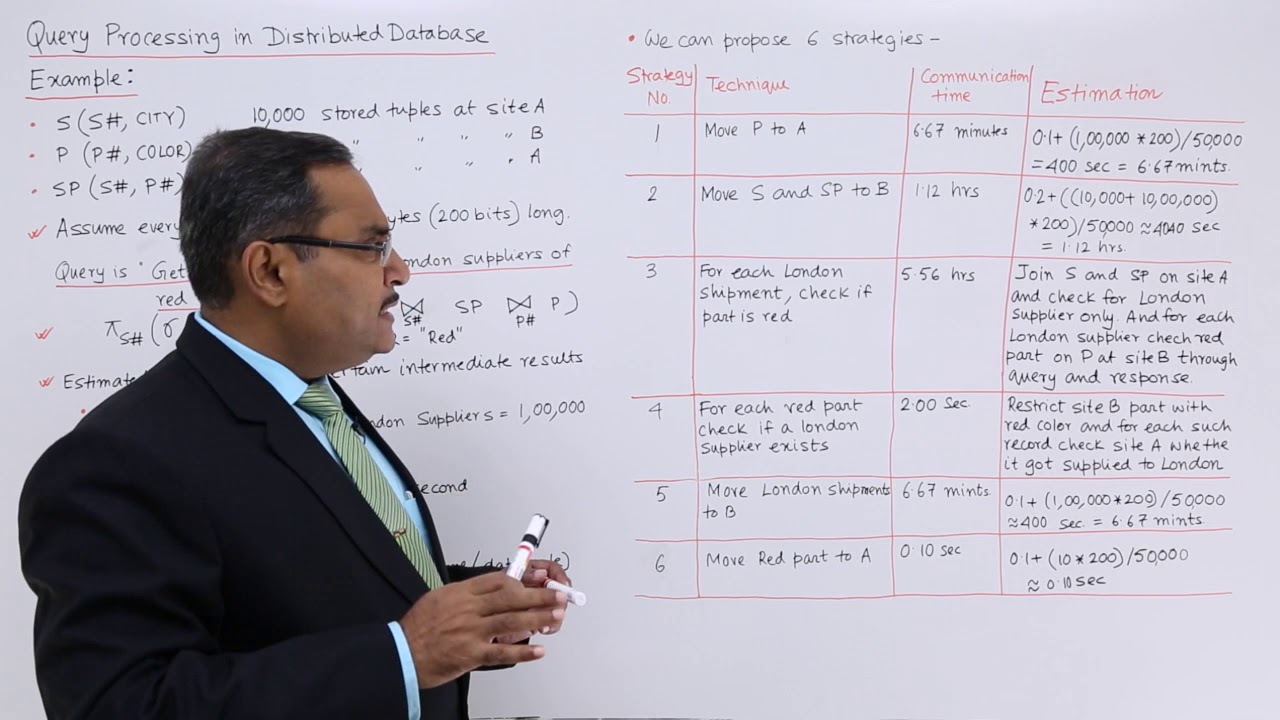 Query Processing in Distributed Database
Example:
• S (S#, CITY) 10,000 stored tuples at site A
• P (P#, COLOR) " " " " B
• SP (S#, P#) " " " A
Assume every bytes (200 bits) long.
Query is "Get London suppliers of
red
π S# (σ ⋈ S# SP ⋈ P# P)
= "Red"
Estimated certain intermediate results
• London Suppliers = 1,00,000
second
• We can propose 6 strategies –
Strategy No. Technique Communication time Estimation
1 Move P to A 6.67 minutes 0.1+ (1,00,000 * 200)/50,000
= 400 sec = 6.67 mints.
2 Move S and SP to B 1.12 hrs 0.2+((10,000+ 10,00,000)
*200)/50,000 ≈ 4040 sec
= 1.12 hrs.
3 For each London 5.56 hrs Join S and SP on site A
shipment, check if and check for London
part is red supplier only. And for each
London supplier chech red
part on P at site B through
query and response.
4 For each red part 2.00 Sec. Restrict site B part with
check if a london red color and for each such
supplier exists record check site A whethe
it got supplied to London
5 Move London shipments 6.67 mints. 0.1+ (1,00,000*200)/50,000
to B ≈400 sec = 6.67 mints
6 Move Red part to A 0.10 sec 0.1+ (10*200)/50,000
≈ 0.10 sec